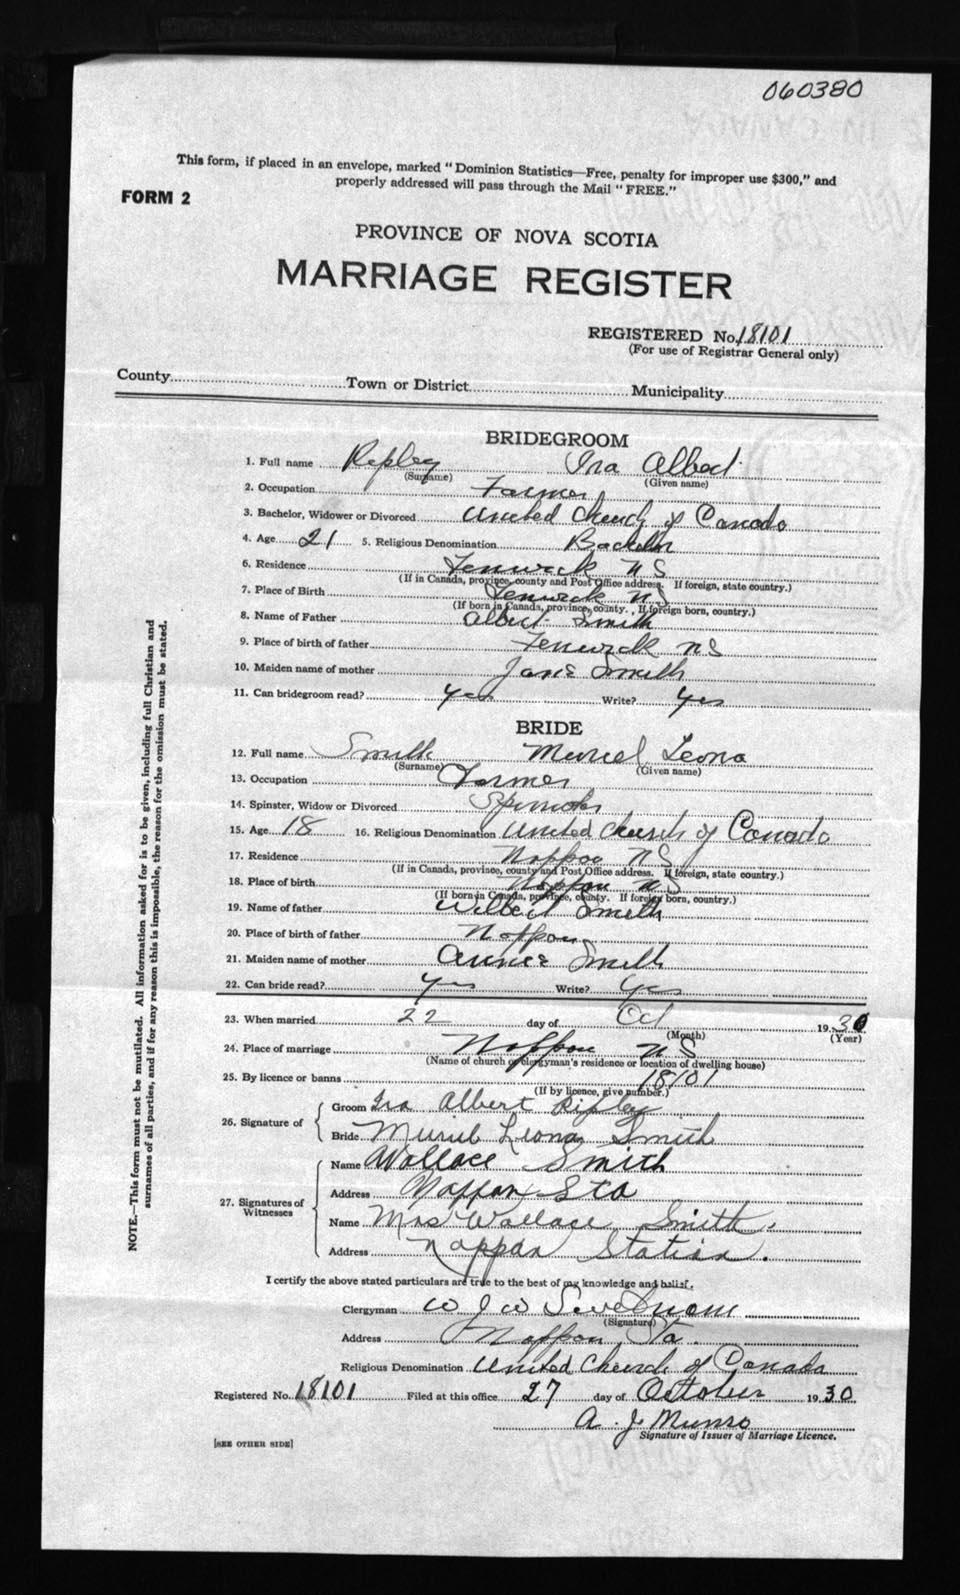 060380
This form, if placed in an envelope, marked "Dominion Statistics—Free, penalty for improper use $300," and
properly addressed will pass through the Mail "FREE."
FORM 2
PROVINCE OF NOVA SCOTIA
MARRIAGE REGISTER
REGISTERED No. 18101
(For use of Registrar General only)
County Town or District Municipality
BRIDEGROOM
1. Full name Ripley Ira Albert
(Surname) (Given name)
2. Occupation Farmer
3. Bachelor, Widower or Divorced United Church of Canada
4. Age 21 5. Religious Denomination Bachelor
6. Residence Fenwick N S
(If in Canada, province, county and Post Office address. If foreign, state country.)
7. Place of Birth Fenwick N S
(If born in Canada, province, county. , If foreign born, country.)
8. Name of Father Albert Smith
9. Place of birth of father Fenwick N S
10. Maiden name of mother Jane Smith
11. Can bridegroom read? yes Write? yes
BRIDE
12. Full name Smith Muriel Leona
(Surname) (Given name)
13. Occupation Farmer
14. Spinster, Widow or Divorced Spinster
15. Age 18 16. Religious Denomination United Church of Canada
17. Residence Nappan N S
(If in Canada, province, county and Post Office address. If foreign, state country.)
18. Place of birth Nappan N S
(If born in Canada, province, county. If foreign born, country.)
19. Name of father Wilbert Smith
20. Place of birth of father Nappan
21. Maiden name of mother Annie Smith
22. Can bride read? yes Write? yes
23. When married 22 day of Oct 1930
(Month) (Year)
24. Place of marriage Nappan N S
(Name of church or clergyman's residence or location of dwelling house)
25. By licence or banns 18101
(If by licence, give number.)
26. Signature of
Groom Ira Albert Ripley
Bride Muriel Leona Smith
27. Signatures of Witnesses
Name Wallace Smith
Address Nappan Sta
Name Mrs Wallace Smith.
Address Nappan Station.
I certify the above stated particulars are true to the best of my knowledge and belief.
Clergyman W J W
(Signature)
Address Nappan Sta.
Religious Denomination United Church of Canada
Registered No. 18101 Filed at this office 27 day of October 1930
A. J Munro
Signature of Issuer of Marriage Licence.
[SEE OTHER SIDE]
NOTE.—This form must not be mutilated. All information asked for is to be given, including full Christian and
surnames of all parties, and if for any reason this is impossible, the reason for the omission must be stated.